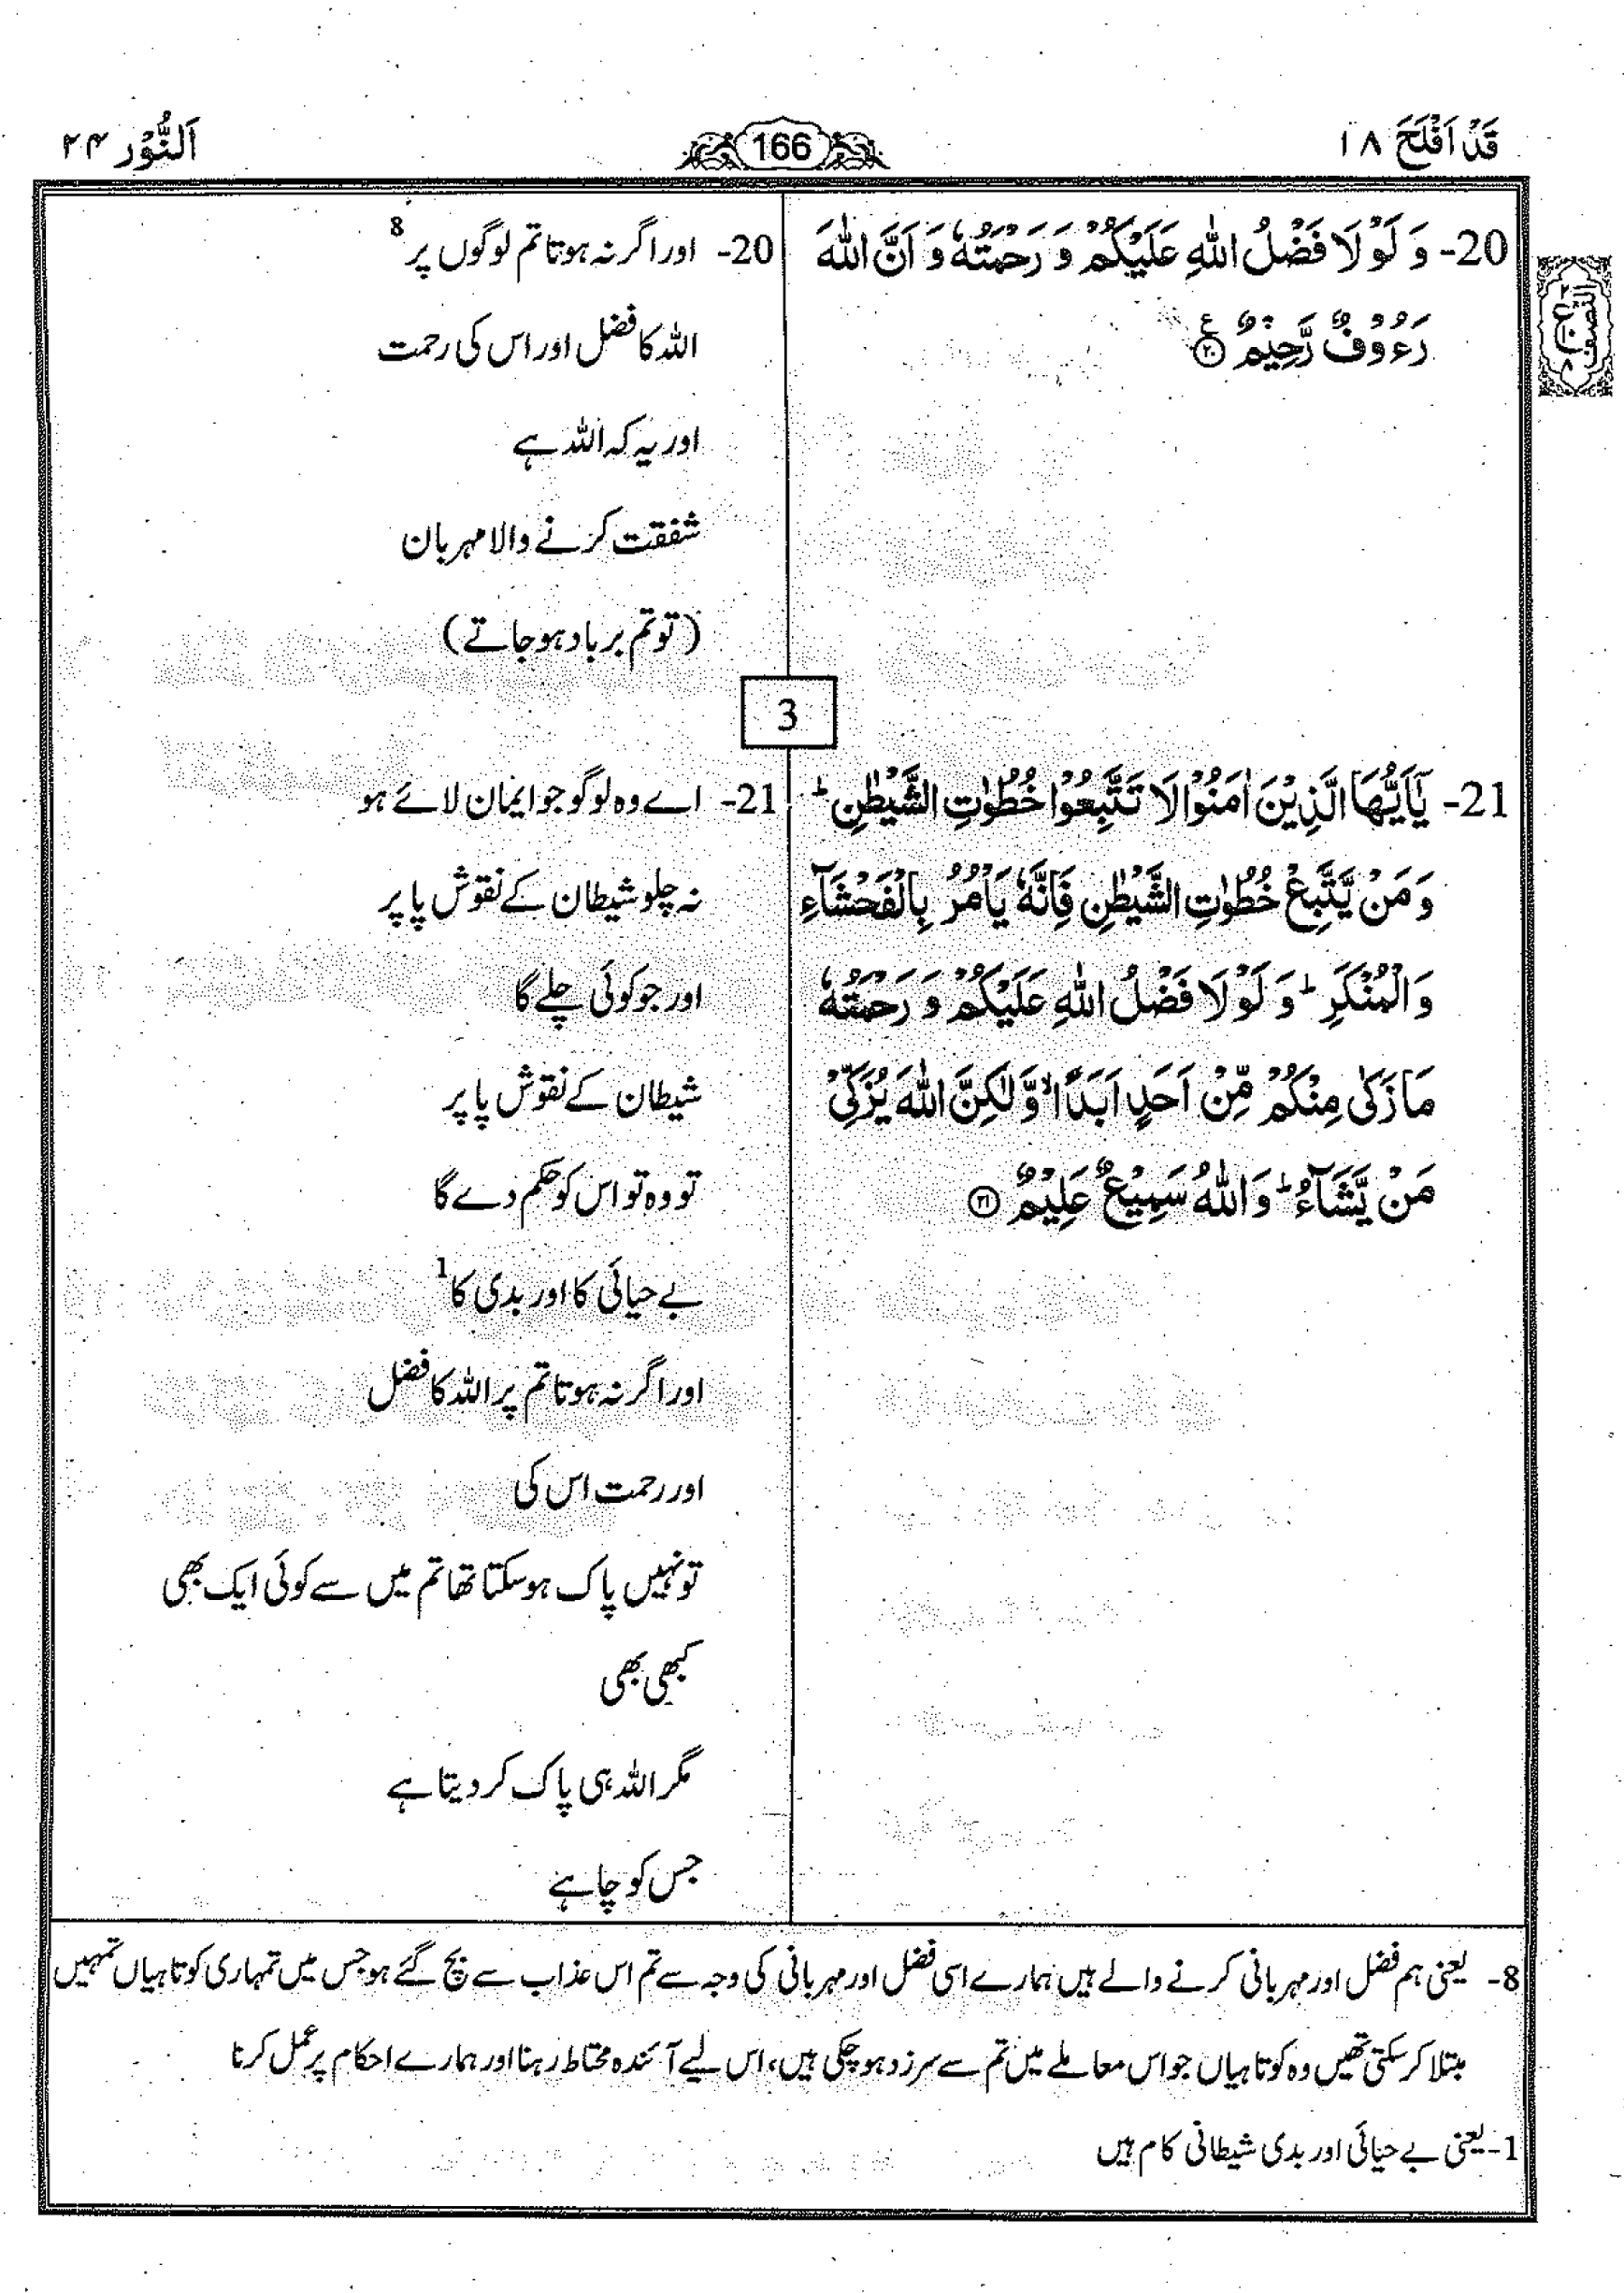 قَدْ اَفْلَحَ ۱۸
166
اَلنُّوْر ۲۴
20- وَ لَوْ لَا فَضْلُ اللّٰهِ عَلَیْكُمْ وَ رَحْمَتُهٗ وَ اَنَّ اللّٰهَ
رَءُوْفٌ رَّحِیْمٌ ۟۠ ﴿۲۰﴾ ع
20- اور اگر نہ ہوتا تم لوگوں پر 8
اللہ کا فضل اور اس کی رحمت
اور یہ کہ اللہ ہے
شفقت کرنے والا مہربان
(تو تم برباد ہو جاتے)
3
21- یٰۤاَیُّهَا الَّذِیْنَ اٰمَنُوْا لَا تَتَّبِعُوْا خُطُوٰتِ الشَّیْطٰنِ ؕ
وَ مَنْ یَّتَّبِعْ خُطُوٰتِ الشَّیْطٰنِ فَاِنَّهٗ یَاْمُرُ بِالْفَحْشَآءِ
وَ الْمُنْكَرِ ؕ وَ لَوْ لَا فَضْلُ اللّٰهِ عَلَیْكُمْ وَ رَحْمَتُهٗ
مَا زَكٰی مِنْكُمْ مِّنْ اَحَدٍ اَبَدًا ۙ وَّ لٰكِنَّ اللّٰهَ یُزَكِّیْ
مَنْ یَّشَآءُ ؕ وَ اللّٰهُ سَمِیْعٌ عَلِیْمٌ ﴿۲۱﴾
21- اے وہ لوگو جو ایمان لائے ہو
نہ چلو شیطان کے نقوش پا پر
اور جو کوئی چلے گا
شیطان کے نقوش پا پر
تو وہ تو اس کو حکم دے گا
بے حیائی کا اور بدی کا 1
اور اگر نہ ہوتا تم پر اللہ کا فضل
اور رحمت اس کی
تو نہیں پاک ہو سکتا تھا تم میں سے کوئی ایک بھی
کبھی بھی
مگر اللہ ہی پاک کر دیتا ہے
جس کو چاہے
8- یعنی ہم فضل اور مہربانی کرنے والے ہیں ہمارے اسی فضل اور مہربانی کی وجہ سے تم اس عذاب سے بچ گئے ہو جس میں تمہاری کوتاہیاں تمہیں
مبتلا کر سکتی تھیں وہ کوتاہیاں جو اس معاملے میں تم سے سرزد ہو چکی ہیں، اس لیے آئندہ محتاط رہنا اور ہمارے احکام پر عمل کرنا
1- یعنی بے حیائی اور بدی شیطانی کام ہیں